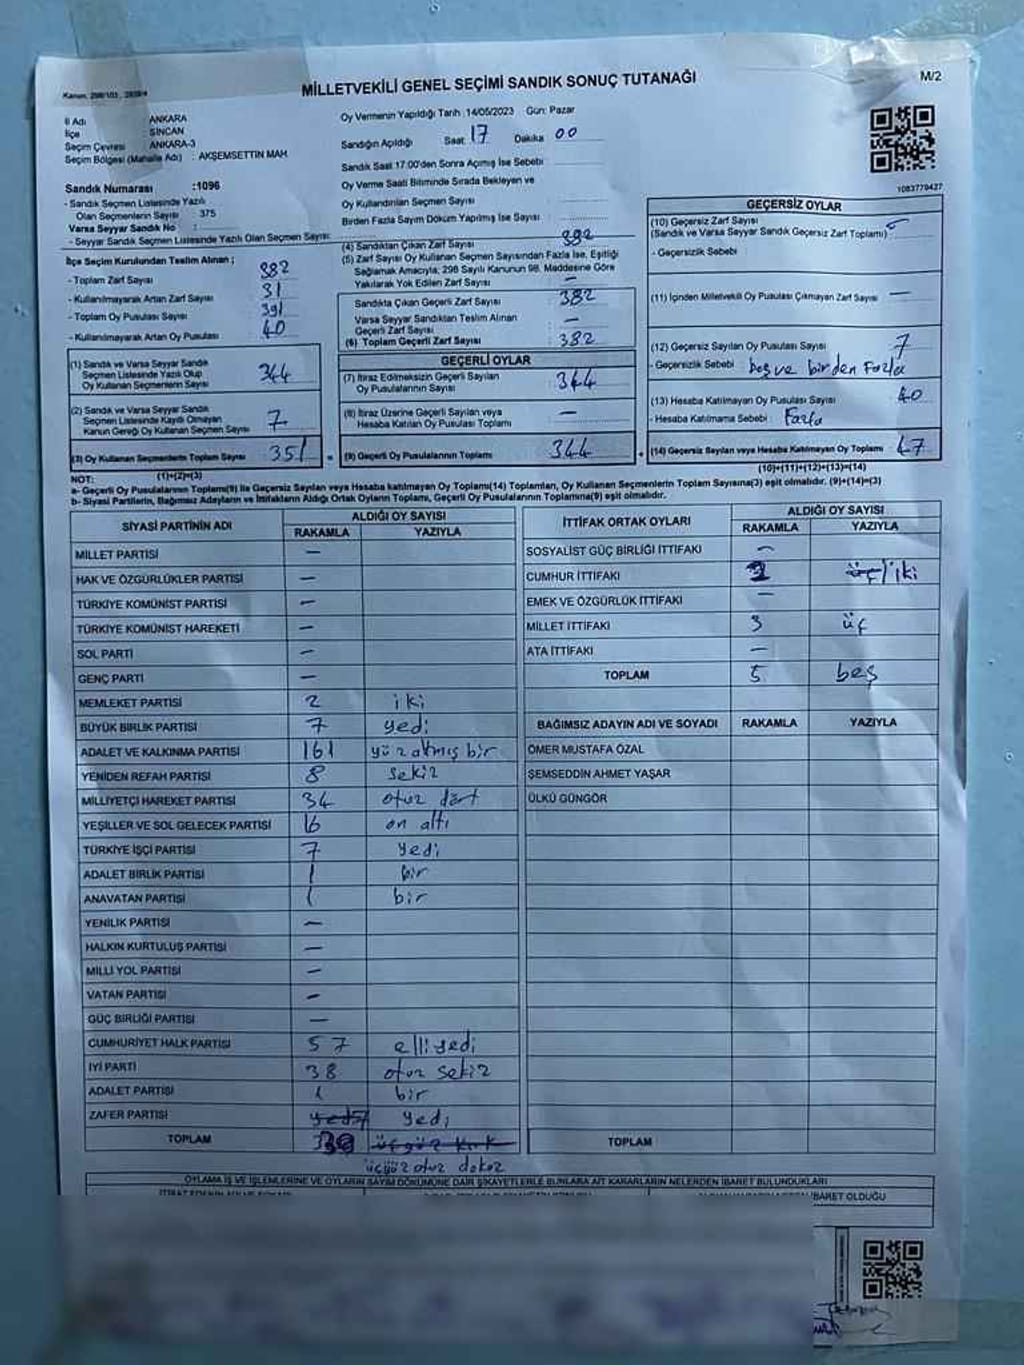 MİLLETVEKİLİ GENEL SEÇİMİ SANDIK SONUÇ TUTANAĞI
M/2
İl Adı : ANKARA
İlçe : SİNCAN
Seçim Çevresi : ANKARA-3
Seçim Bölgesi (Mahalle Adı) : AKŞEMSETTİN MAH
Oy Vermenin Yapıldığı Tarih :14/05/2023 Gün: Pazar
Sandığın Açıldığı Saat 17 Dakika 00
Sandık Saat 17.00'den Sonra Açılmış İse Sebebi
Oy Verme Saati Bitiminde Sırada Bekleyen ve
Oy Kullandırılan Seçmen Sayısı
Birden Fazla Sayım Döküm Yapılmış İse Sayısı
Sandık Numarası :1096
- Sandık Seçmen Listesinde Yazılı
Olan Seçmenlerin Sayısı : 375
Varsa Seyyar Sandık No :
- Seyyar Sandık Seçmen Listesinde Yazılı Olan Seçmen Sayısı:
İlçe Seçim Kurulundan Teslim Alınan ;
- Toplam Zarf Sayısı 382
- Kullanılmayarak Artan Zarf Sayısı 31
- Toplam Oy Pusulası Sayısı 391
- Kullanılmayarak Artan Oy Pusulası 40
(1) Sandık ve Varsa Seyyar Sandık
Seçmen Listesinde Yazılı Olup
Oy Kullanan Seçmenlerin Sayısı 344
(2) Sandık ve Varsa Seyyar Sandık
Seçmen Listesinde Kayıtlı Olmayan
Kanun Gereği Oy Kullanan Seçmen Sayısı 7
(3) Oy Kullanan Seçmenlerin Toplam Sayısı 351
(1)+(2)=(3)
(4) Sandıktan Çıkan Zarf Sayısı
(5) Zarf Sayısı Oy Kullanan Seçmen Sayısından Fazla İse, Eşitliği
Sağlamak Amacıyla, 298 Sayılı Kanunun 98. Maddesine Göre
Yakılarak Yok Edilen Zarf Sayısı —
Sandıkta Çıkan Geçerli Zarf Sayısı 382
Varsa Seyyar Sandıktan Teslim Alınan
Geçerli Zarf Sayısı —
(6) Toplam Geçerli Zarf Sayısı 382
GEÇERLİ OYLAR
(7) İtiraz Edilmeksizin Geçerli Sayılan
Oy Pusulasının Sayısı 344
(8) İtiraz Üzerine Geçerli Sayılan veya
Hesaba Katılan Oy Pusulası Toplamı —
(9) Geçerli Oy Pusulalarının Toplamı 344
1083779427
GEÇERSİZ OYLAR
(10) Geçersiz Zarf Sayısı
(Sandık ve Varsa Seyyar Sandık Geçersiz Zarf Toplamı)
- Geçersizlik Sebebi
(11) İçinden Milletvekili Oy Pusulası Çıkmayan Zarf Sayısı —
(12) Geçersiz Sayılan Oy Pusulası Sayısı 7
- Geçersizlik Sebebi boş ve birden Fazla
(13) Hesaba Katılmayan Oy Pusulası Sayısı 40
- Hesaba Katılmama Sebebi Fazla
(14) Geçersiz Sayılan veya Hesaba Katılmayan Oy Toplamı 47
(10)+(11)+(12)+(13)=(14)
NOT:
a- Geçerli Oy Pusulalarının Toplamı(9) ile Geçersiz Sayılan veya hesaba katılmayan Oy Toplamı(14) Toplamları, Oy Kullanan Seçmenlerin Toplam Sayısına(3) eşit olmalıdır. (9)+(14)=(3)
b- Siyasi Partilerin, Bağımsız Adayların ve İttifakların Aldığı Ortak Oyların Toplamı, Geçerli Oy Pusulalarının Toplamına(9) eşit olmalıdır.
SİYASİ PARTİNİN ADI ALDIĞI OY SAYISI
RAKAMLA YAZIYLA
MİLLET PARTİSİ —
HAK VE ÖZGÜRLÜKLER PARTİSİ —
TÜRKİYE KOMÜNİST PARTİSİ —
TÜRKİYE KOMÜNİST HAREKETİ —
SOL PARTİ —
GENÇ PARTİ —
MEMLEKET PARTİSİ 2 iki
BÜYÜK BİRLİK PARTİSİ 7 yedi
ADALET VE KALKINMA PARTİSİ 161 yüz atmış bir
YENİDEN REFAH PARTİSİ 8 sekiz
MİLLİYETÇİ HAREKET PARTİSİ 34 otuz dört
YEŞİLLER VE SOL GELECEK PARTİSİ 16 on altı
TÜRKİYE İŞÇİ PARTİSİ 7 yedi
ADALET BİRLİK PARTİSİ 1 bir
ANAVATAN PARTİSİ 1 bir
YENİLİK PARTİSİ —
HALKIN KURTULUŞ PARTİSİ —
MİLLİ YOL PARTİSİ —
VATAN PARTİSİ —
GÜÇ BİRLİĞİ PARTİSİ —
CUMHURİYET HALK PARTİSİ 57 elli yedi
İYİ PARTİ 38 otuz sekiz
ADALET PARTİSİ 1 bir
ZAFER PARTİSİ yedi 7 yedi
TOPLAM üçyüz kırk
üçyüz otuz dokuz
İTTİFAK ORTAK OYLARI ALDIĞI OY SAYISI
RAKAMLA YAZIYLA
SOSYALİST GÜÇ BİRLİĞİ İTTİFAKI —
CUMHUR İTTİFAKI 2 üç / iki
EMEK VE ÖZGÜRLÜK İTTİFAKI —
MİLLET İTTİFAKI 3 üç
ATA İTTİFAKI —
TOPLAM 5 beş
BAĞIMSIZ ADAYIN ADI VE SOYADI RAKAMLA YAZIYLA
ÖMER MUSTAFA ÖZAL
ŞEMSEDDİN AHMET YAŞAR
ÜLKÜ GÜNGÖR
TOPLAM
OYLAMA İŞ VE İŞLEMLERİNE VE OYLARIN SAYIM DÖKÜMÜNE DAİR ŞİKAYETLERLE BUNLARA AİT KARARLARIN NELERDEN İBARET BULUNDUKLARI
İBARET OLDUĞU